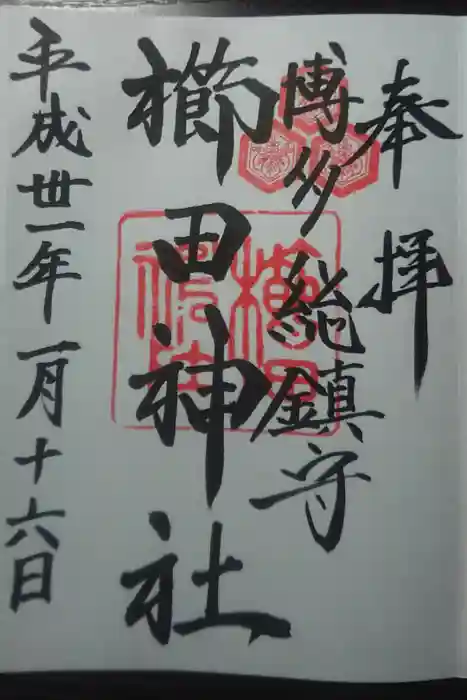 奉拝
博多総鎮守
櫛田神社
平成卅一年一月十六日